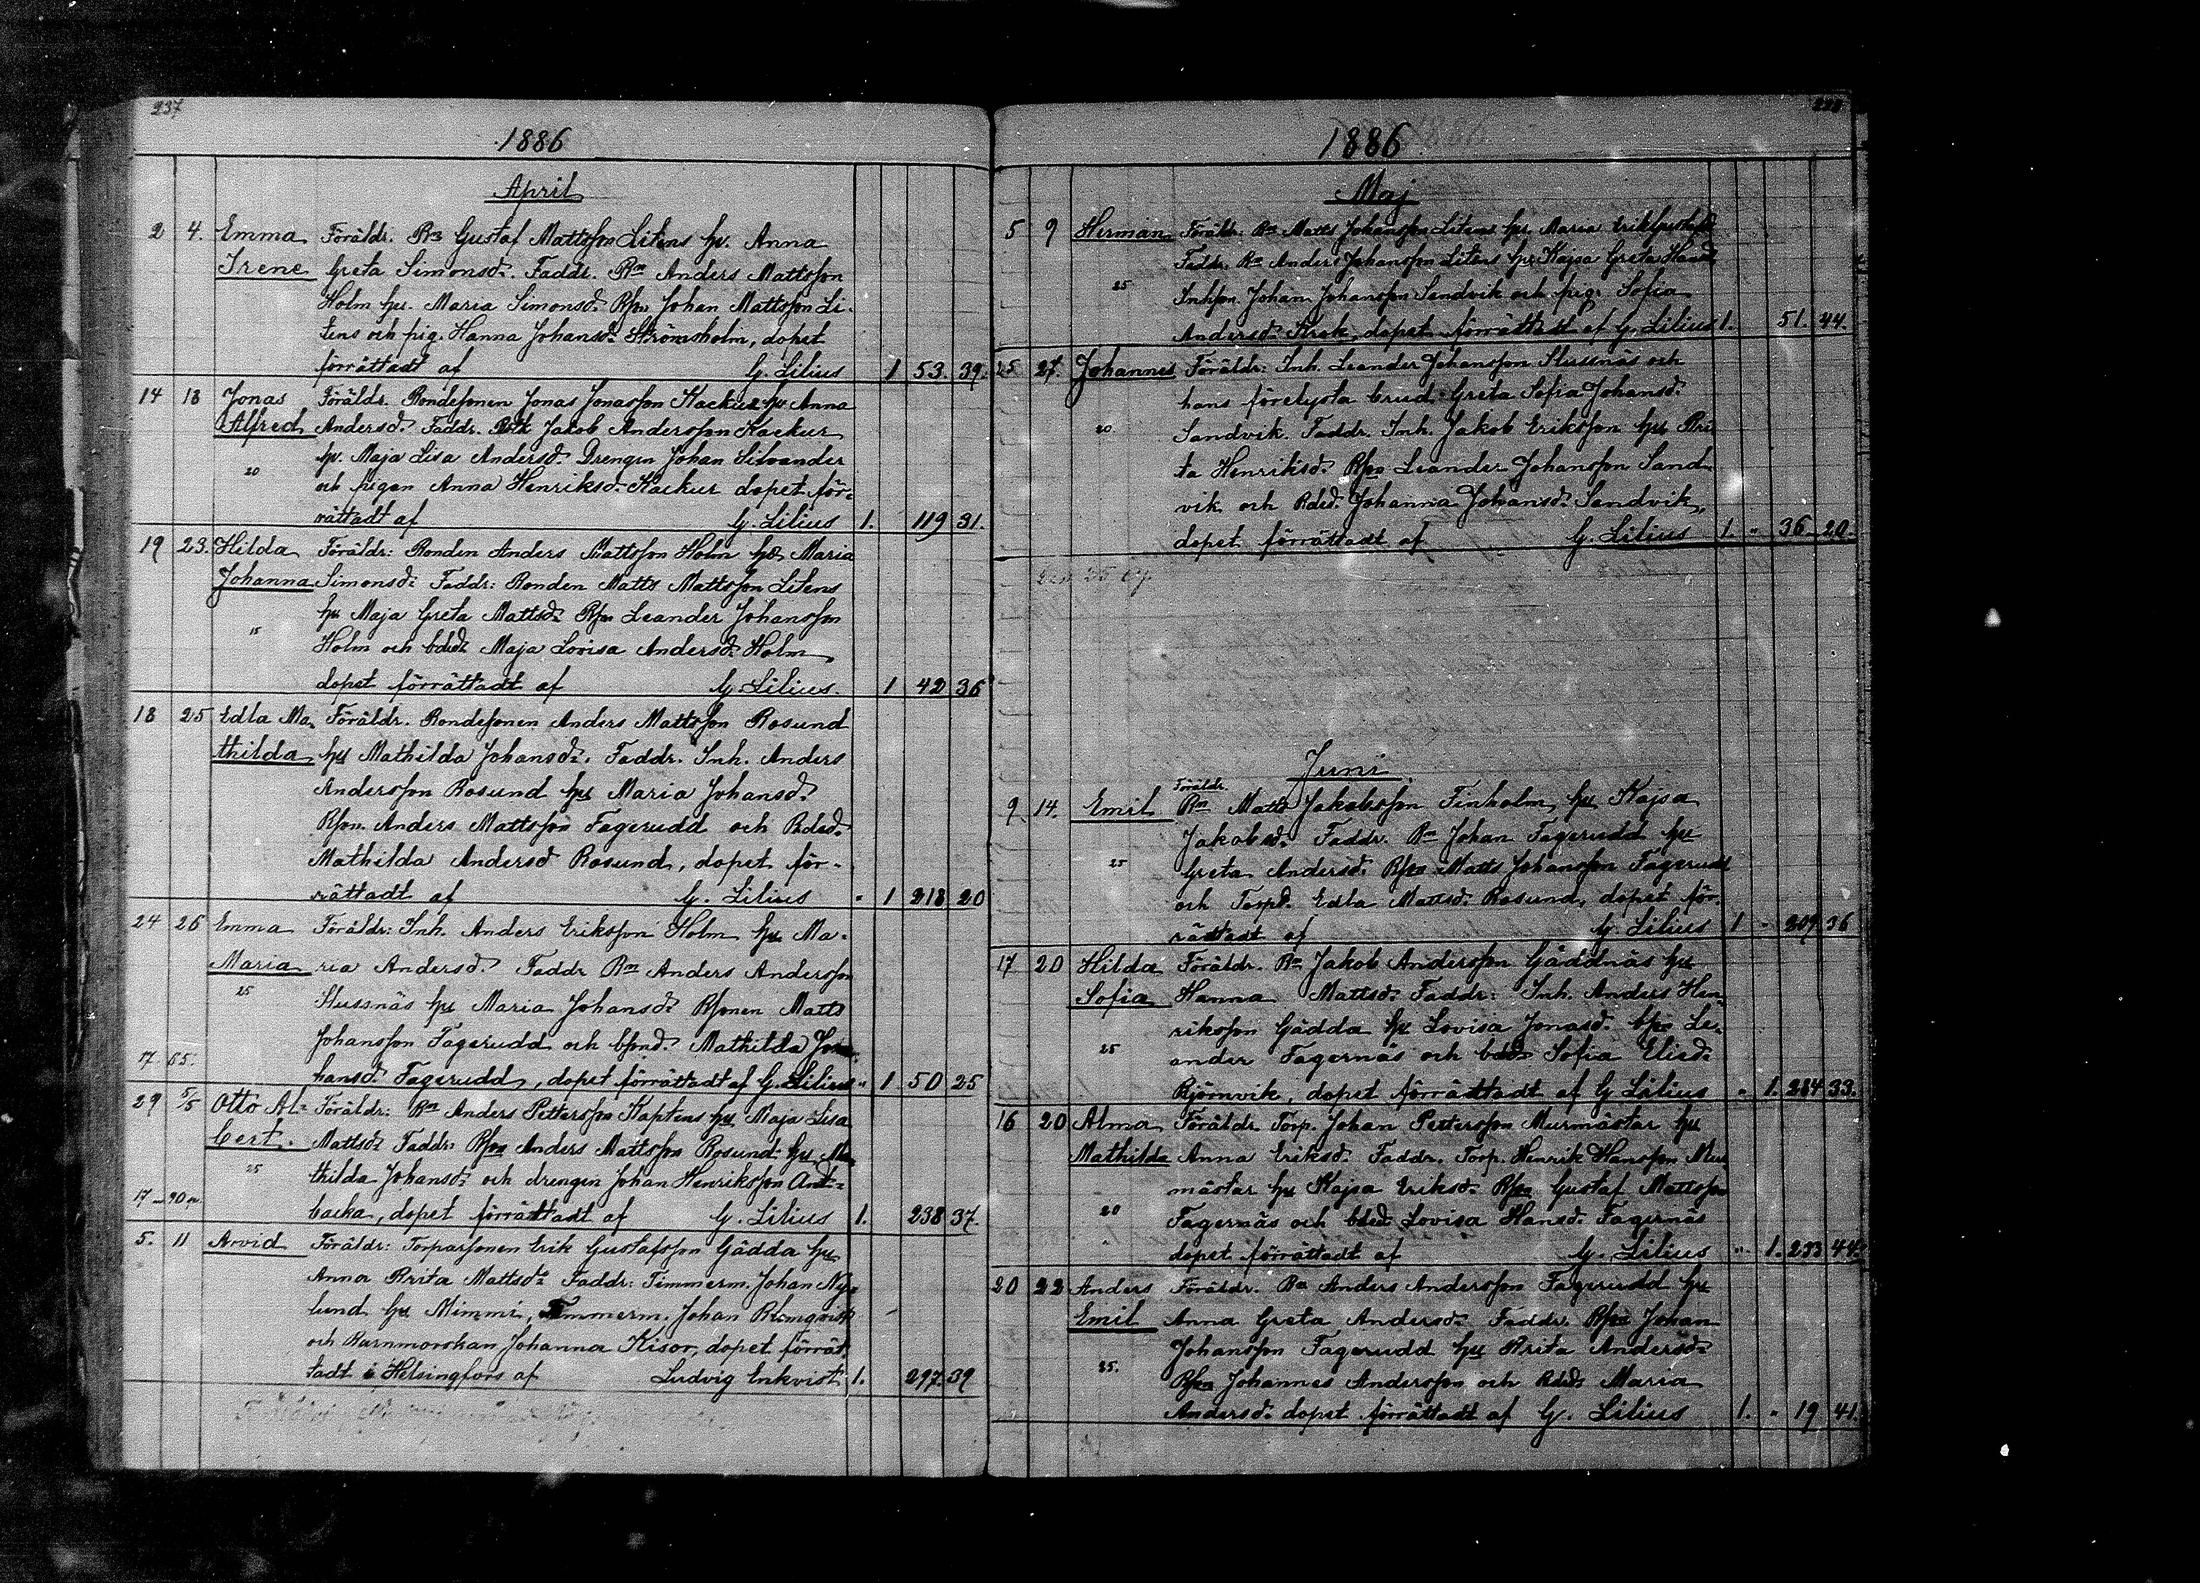 237
1886
April
2 4. Emma Föräldr. Bn Gustaf Mattsson Litens hu. Anna
Irene Greta Simonsd. Faddr. Bn Anders Mattsson
Holm hu. Maria Simonsd. Bson Johan Mattsson Li-
tens och pig. Hanna Johansd. Strömsholm, dopet
förrättadt af G. Lilius 1 53. 39.
14 18 Jonas Föräldr. Bondesonen Jonas Jonasson Kackur hu Anna
Alfred Andersd. Faddr. Jakob Andersson Kackur
20 hu. Maja Lisa Andersd. Drengen Johan Silvander
och pigan Anna Henriksd. Kackur dopet för-
rättadt af G. Lilius 1. 119 31.
19 23. Hilda Föräldr: Bonden Anders Mattsson Holm hu Maria
Johanna Simonsd: Faddr: Bonden Matts Mattsson Litens
hu Maja Greta Mattsd. Bson Leander Johansson
15 Holm och bdod. Maja Lovisa Andersd. Holm
dopet förrättadt af G. Lilius. 1 42 36
18 25 Edla Ma- Föräldr. Bondesonen Anders Mattsson Rosund
thilda hu Mathilda Johansd. Faddr. Inh. Anders
Andersson Rosund hu Maria Johansd.
Bson. Anders Mattsson Fagerudd och Bdod.
Mathilda Andersd Rosund, dopet för-
rättadt af G. Lilius " 1 218 20
24 26 Emma Föräldr: Inh. Anders Eriksson Holm hu Ma-
Maria ria Andersd. Faddr Bn Anders Andersson
25 Slussnäs hu Maria Johansd. Bsonen Matts
Johansson Fagerudd och Mathilda Jo
17 85. hansd. Fagerudd, dopet förrättadt af G. Lilius " 1 50 25
29 5/5 Otto Al- Föräldr: Bn Anders Pettersson Kaptens hu Maja Lisa
bert. Mattsd. Faddr. Bson Anders Mattsson Rosund hu Ma
25 thilda Johansd. och drengen Johan Henriksson And-
17 - 90 backa, dopet förrättadt af G. Lilius 1. 238 37.
5. 11 Arvid Föräldr: Torparsonen Erik Gustafsson Gädda hu
Anna Brita Mattsd. Faddr: Timmerm. Johan Ny-
lund hu Mimmi, Timmerm. Johan Blomqvist
och Barnmorskan Johanna Kisor, dopet förrät-
tadt i Helsingfors af Ludvig Enkvist 1. 297. 39
1886
Maj
5 9 Herman Föräldr. Bn Matts Johansson Litens hu Maria
Faddr. Bn Anders Johansson Litens hu Kajsa Greta
25 Inhson Johan Johansson Sandvik och pig. Sofia
Andersd. Krok, dopet förrättadt af G. Lilius 1. 51. 44.
25. 27. Johannes Föräldr: Inh. Leander Johansson Slussnäs och
hans förelysta brud Greta Sofia Johansd.
20 Sandvik. Faddr. Inh. Jakob Eriksson hu Bri
ta Henriksd. Bson Leander Johansson Sand
vik och Bdod. Johanna Johansd. Sandvik,
dopet förrättadt af G. Lilius 1. " 36 20.
Juni
Föräldr.
9 14. Emil Bn Matts Jakobsson Finholm hu Kajsa
Jakobsd. Faddr. Bn Johan Fagerudd hu
25 Greta Andersd. Bson Matts Johansson Fagerudd
och Torpd. Edla Mattsd. Rosund, dopet för-
rättadt af G. Lilius 1 " 209 36
17 20 Hilda Föräldr. Bn Jakob Andersson Gäddnäs hu
Sofia Hanna Mattsd. Faddr: Inh. Anders Hen-
riksson Gädda hu Lovisa Jonasd. bson Le-
25 ander Fagernäs och bdod Sofia Elisd.
Björnvik, dopet förrättadt af G Lilius " 1. 284 33.
16 20 Alma Föräldr Torp. Johan Pettersson Murmästar hu
Mathilda Anna Eriksd. Faddr. Torp. Henrik Hansson Mur
mästar hu Kajsa Eriksd. Bson Gustaf Mattsson
20 Fagernäs och bdod Lovisa Hansd. Fagernäs
dopet förrättadt af G. Lilius " 1. 233 44.
20 22 Anders Föräldr. Bn Anders Andersson Fagerudd hu
Emil Anna Greta Andersd. Faddr. Bson Johan
Johansson Fagerudd hu Brita Andersd.
25. Bson Johannes Andersson och Bdod Maria
Andersd. dopet förrättadt af G. Lilius 1. " 19 41.